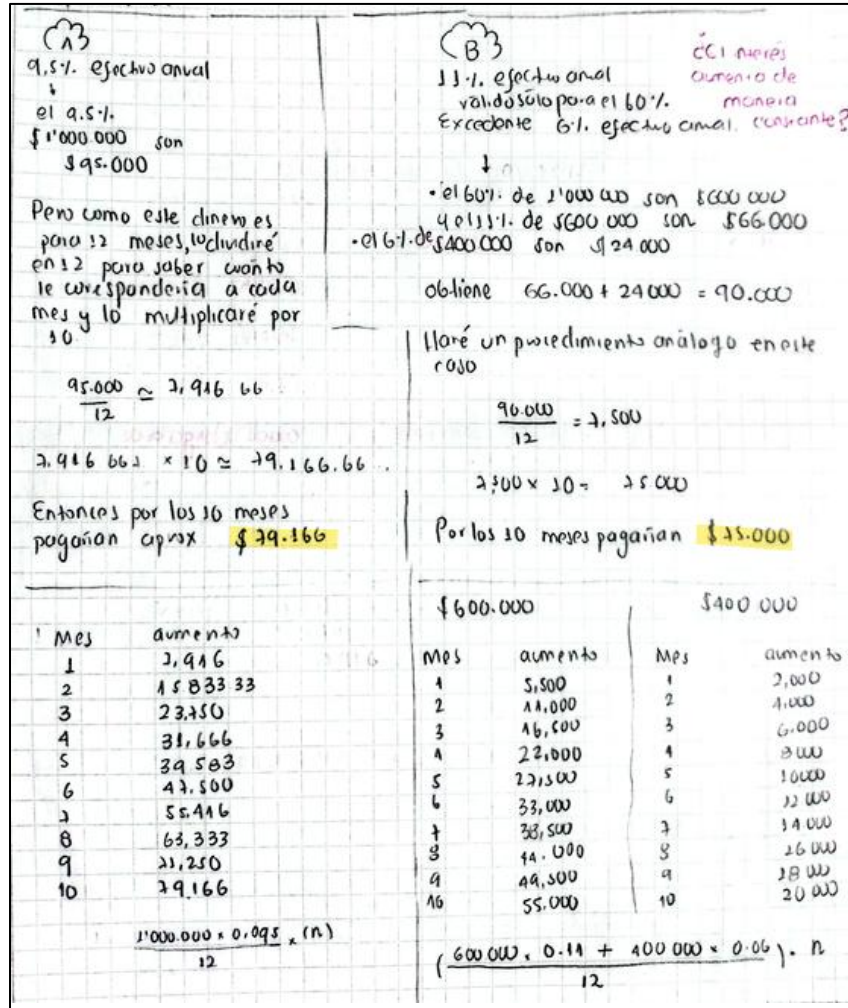 A
9,5%. efectivo anual
el 9.5%.
$1'000.000 son
$95.000
Pero como este dinero es
para 12 meses, lo dividiré
en 12 para saber cuanto
le correspondería a cada
mes y lo multiplicaré por
10.
95.000 / 12 ≃ 7,916 66
7.916 667 × 10 ≃ 79.166.66...
Entonces por los 10 meses
pagarían aprox $79.166
Mes aumento
1 7,916
2 15833 33
3 23,750
4 31,666
5 39 583
6 47,500
7 55.416
8 63,333
9 71,250
10 79.166
1'000.000 × 0.095 / 12 × (n)
B
11%. efectivo anual
valido sólo para el 60%.
Excedente 6%. efectivo anual.
¿El interés
aumenta de
manera
constante?
• el 60%. de 1'000 000 son $600 000
y el 11%. de $600 000 son $66.000
• el 6%. de $400 000 son $24 000
obtiene 66.000 + 24000 = 90.000
Haré un procedimiento análogo en este
caso
90.000 / 12 = 7,500
7,500 × 10 = 75 000
Por los 10 meses pagarían $75.000
$600.000
Mes aumento
1 5,500
2 11,000
3 16,500
4 22,000
5 27,500
6 33,000
7 38,500
8 44.000
9 49,500
10 55.000
$400 000
Mes aumento
1 2,000
2 4,000
3 6.000
4 8000
5 10000
6 12 000
7 14 000
8 16 000
9 18 000
10 20 000
(600 000 × 0.11 + 400 000 × 0.06 / 12) · n